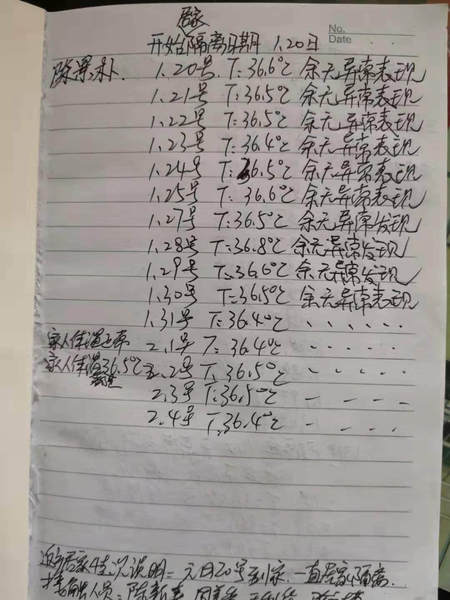 居家
No.
Date
开始隔离日期 1.20日
陈 朴. 1.20号 T:36.6℃ 余无异常表现
1.21号 T:36.5℃ 余无异常表现
1.22号 T:36.5℃ 余无异常表现
1.23号 T:36.4℃ 余无异常表现
1.24号 T:36.5℃ 余无异常表现
1.25号 T:36.6℃ 余无异常表现
1.27号 T:36.5℃ 余无异常发现
1.28号 T:36.8℃ 余无异常发现
1.29号 T:36.6℃ 余无异常发现
1.30号 T:36.5℃ 余无异常表现
1.31号 T:36.4℃ 、、、、、
家人体温正常 2.1号 T:36.4℃ 、、、、
家人体温36.5℃ 2.2号 T:36.5℃ - - - -
2.3号 T:36.5℃ - - - -
2.4号 T:36.4℃ - - - -
居家情况说明: 元月20号到家,一直居家隔离.
人员: 陈